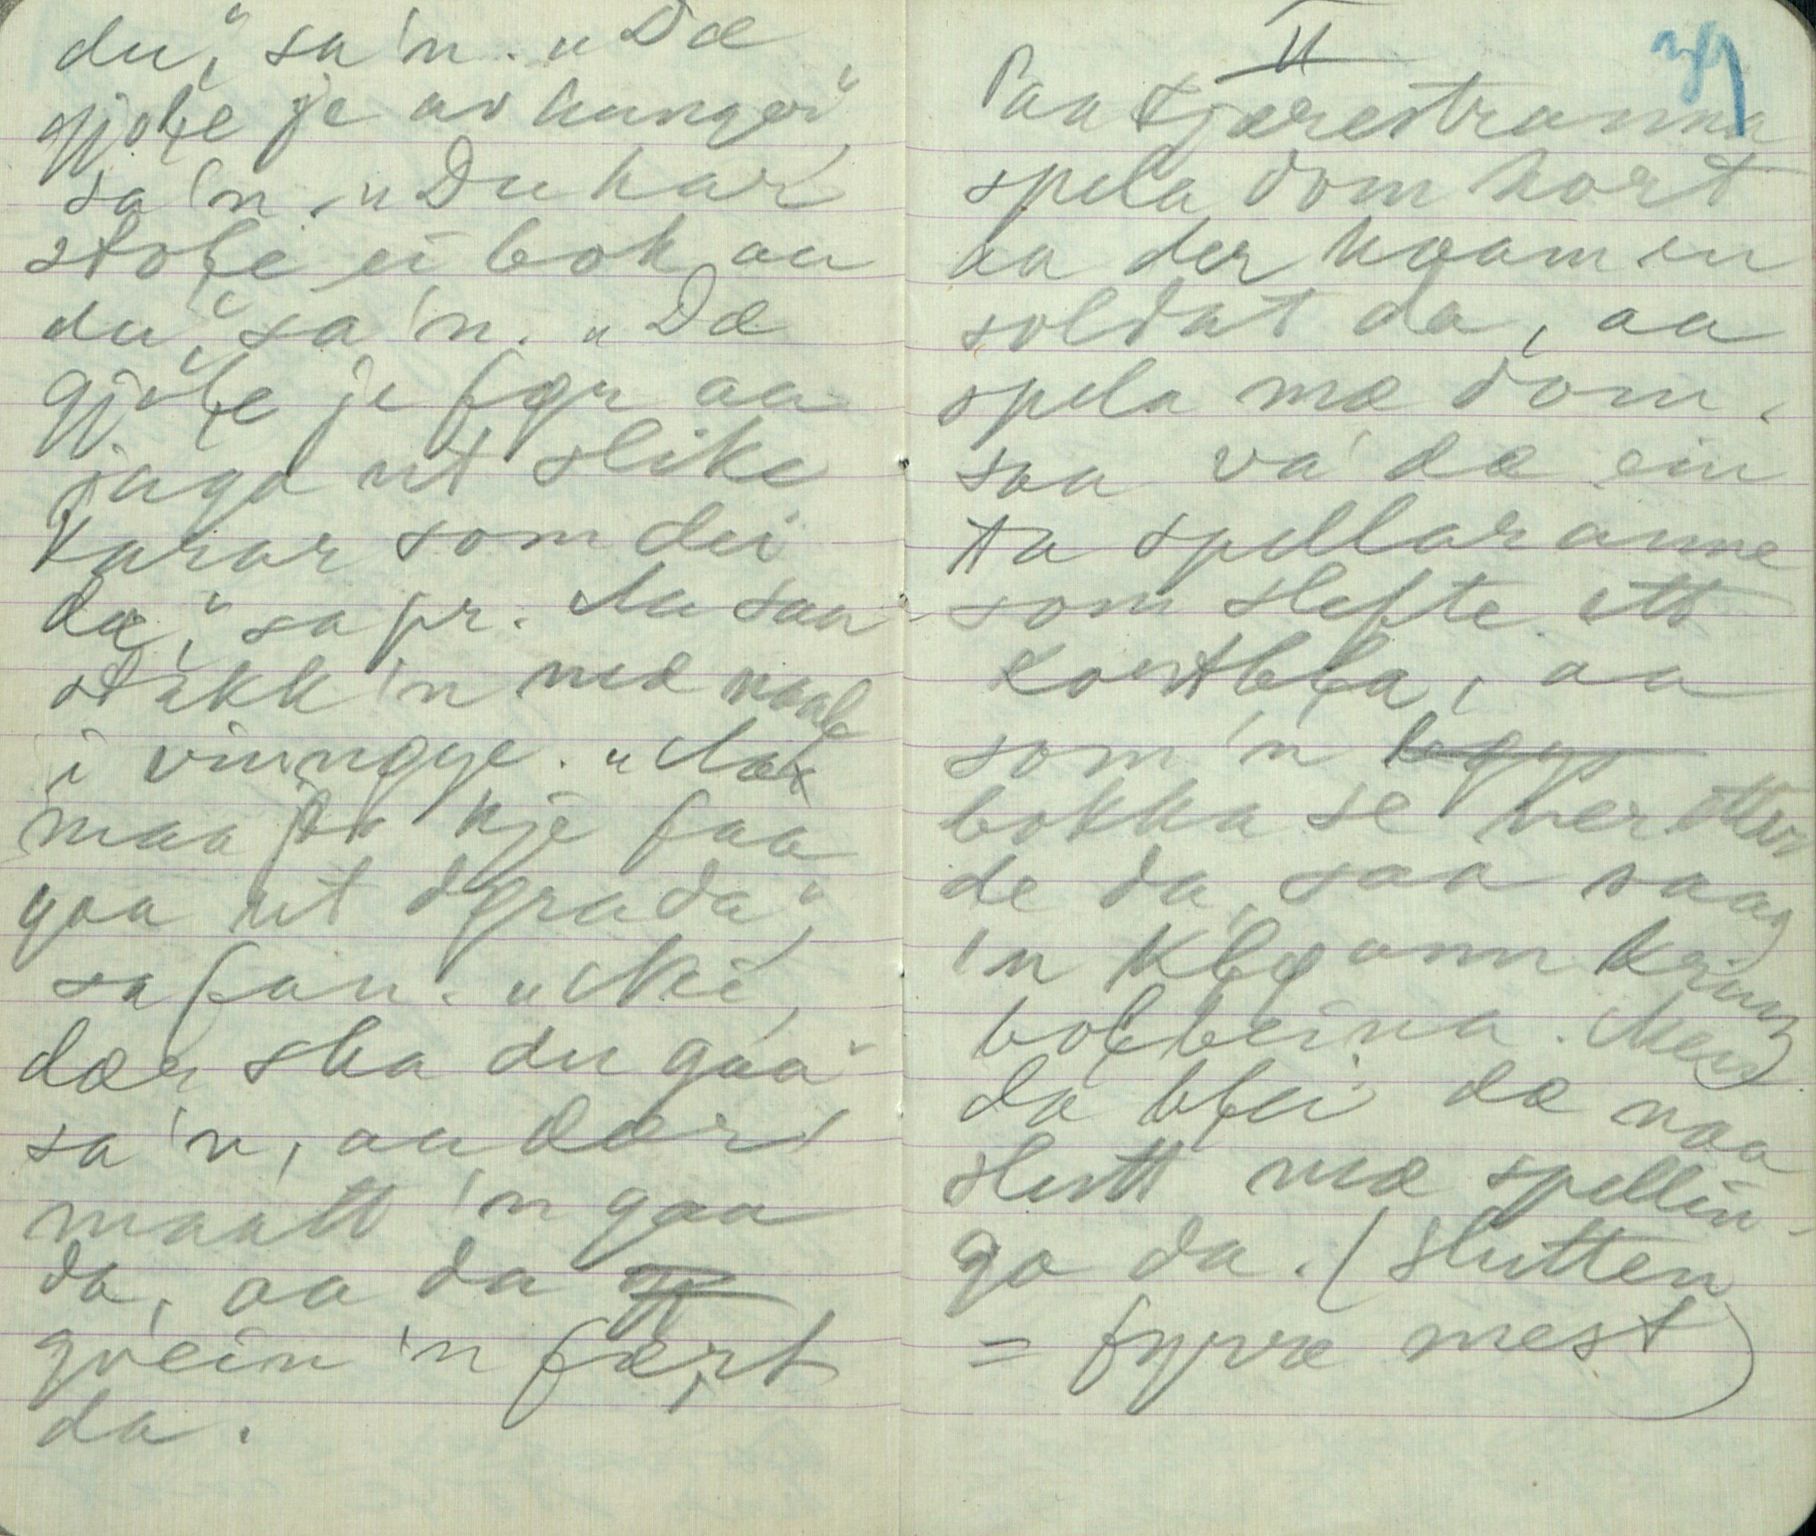 du," sa'n. „Dæ
gjole je av hunger",
sa'n. „Du har
stole ei bok au
du," sa'n. „Dæ
gjole je før aa
jaga ut slike
karar som dei
dæ," sa pr. Aa saa
stakk'n me naale
i vinngge. „Nok
maa je kje faa
gaa ut dgrada",
sa fan. „Nei,
dær ska du gaa"
sa'n, au dær
maatt 'n gaa
da, aa da
gveim 'n fært
da.
II
39
Paa Kjærestranna
spela dom kort
aa der kaam en
soldat da, aa
spela mæ dom.
saa va' dæ ein
ta spellaranne
som slefte itt
kortbla, aa
som 'n
bokka se ner etter
de da, saa saag
'n kløann kring
bolbeina. Men
da blei dæ naa
slutt mæ spellin-
ga da. (Slutten
= fyrre mest)